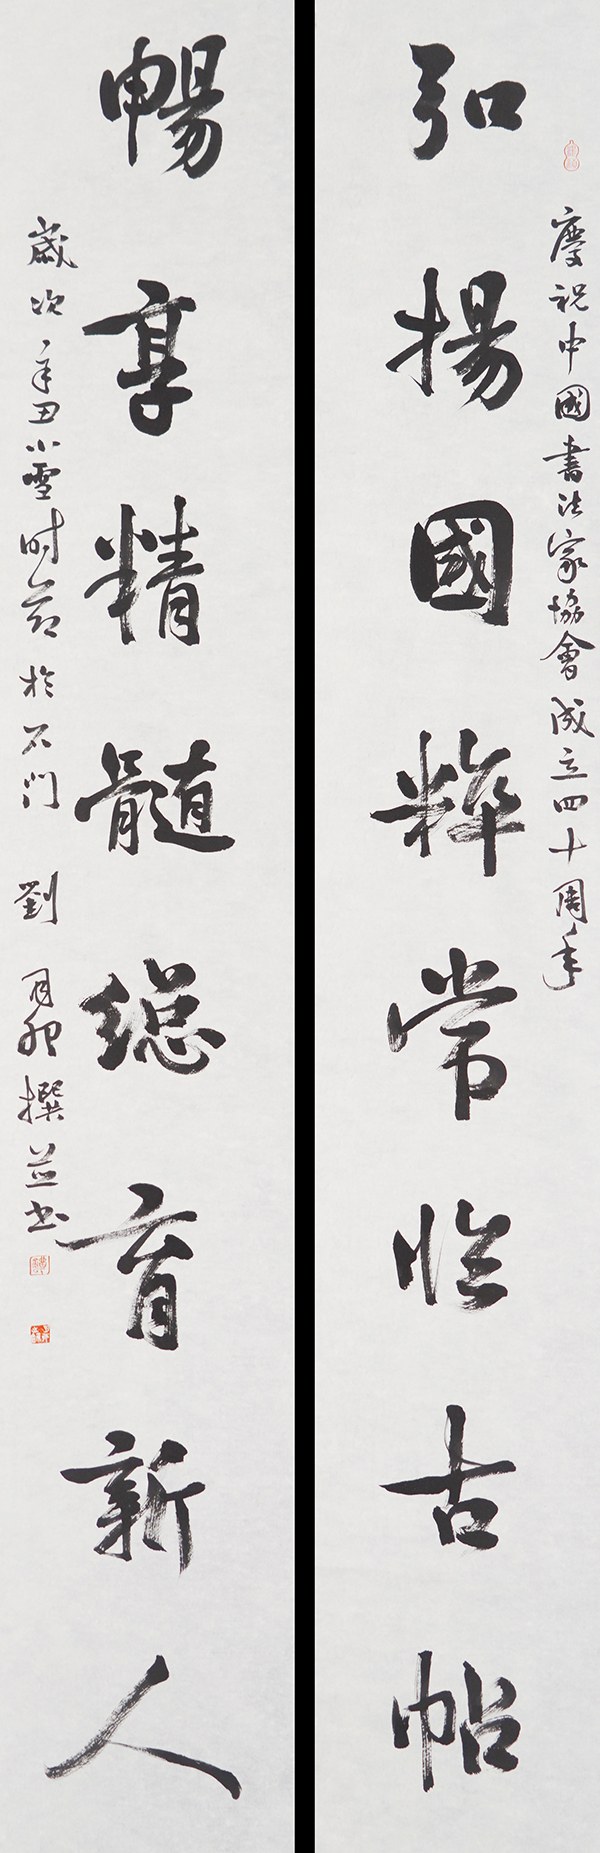 慶祝中國書法家協會成立四十周年
弘揚國粹常临古帖
暢享精髓總育新人
歲次辛丑小雪时节於石门 劉月卯撰並书